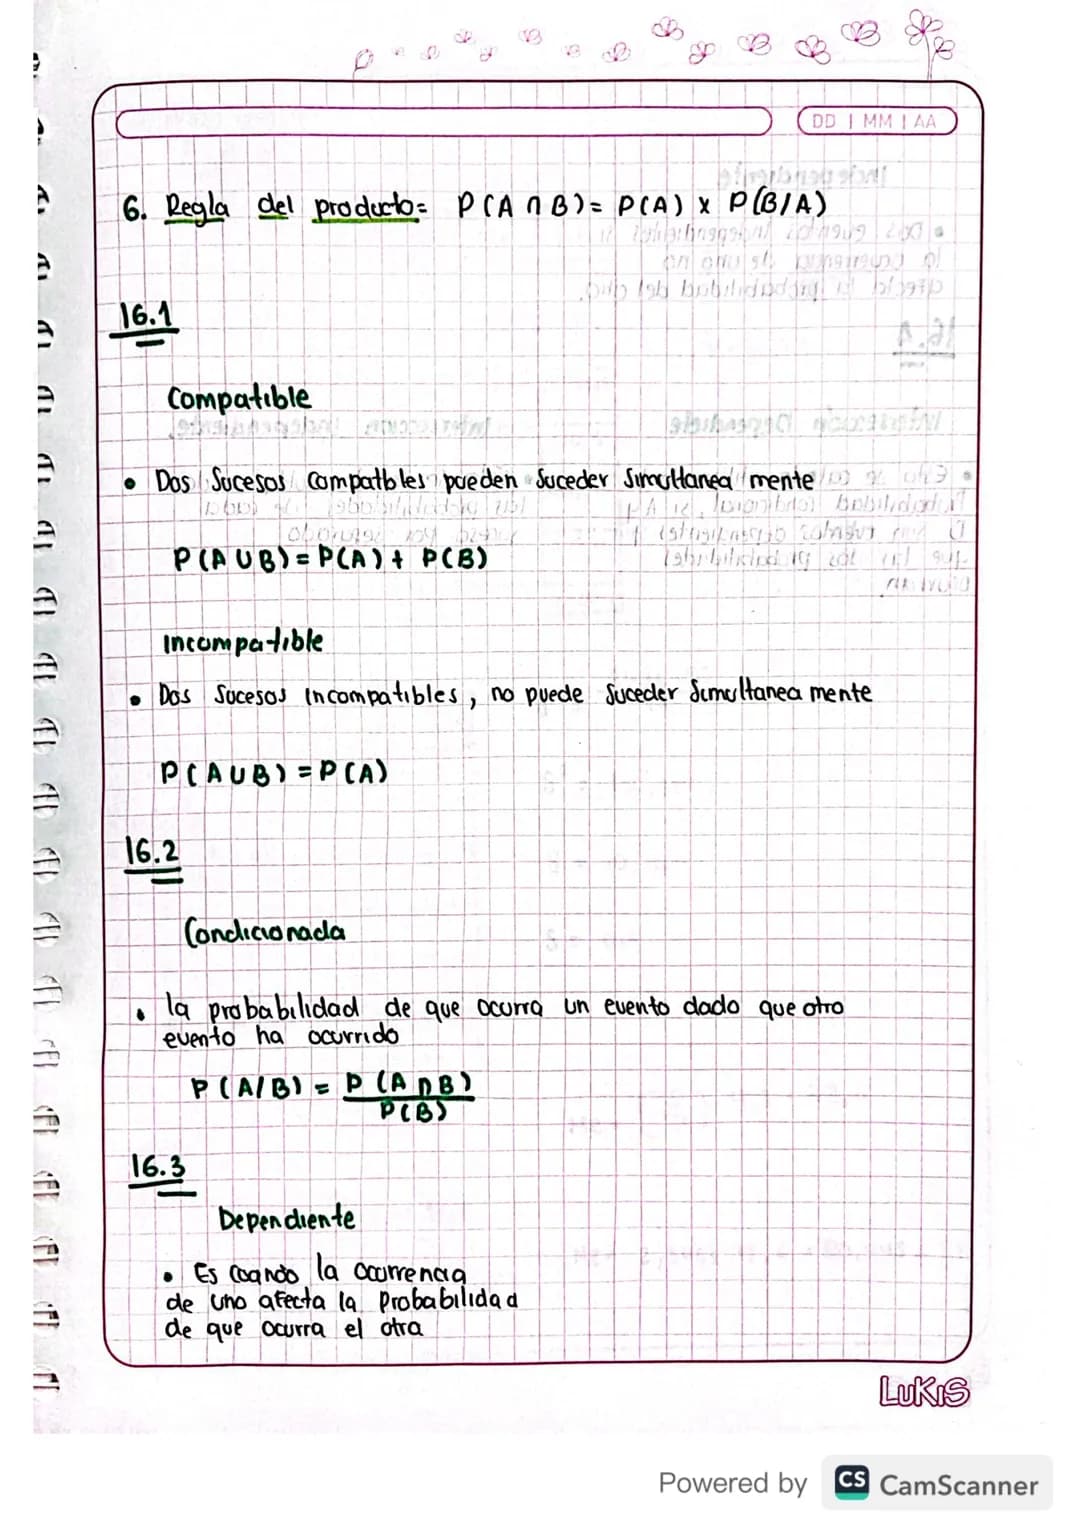 DD | MM | AA
6. Regla del producto= P(A ∩ B)= P(A) x P(B/A)
16.1
Compatible
• Dos Sucesos Compatbles pueden Suceder Simultanea mente
P(A U B) = P(A) + P(B)
Incompatible
• Dos Sucesos Incompatibles, no puede Suceder Simultanea mente
P(A U B) = P(A)
16.2
Condicionada
• la probabilidad de que ocurra un evento dado que otro
evento ha ocurrido
P(A/B) = P(A ∩ B)
P(B)
16.3
Dependiente
• Es cuando la ocurrencia
de uno afecta la Probabilidad
de que ocurra el otra
LUKIS
Powered by CS CamScanner